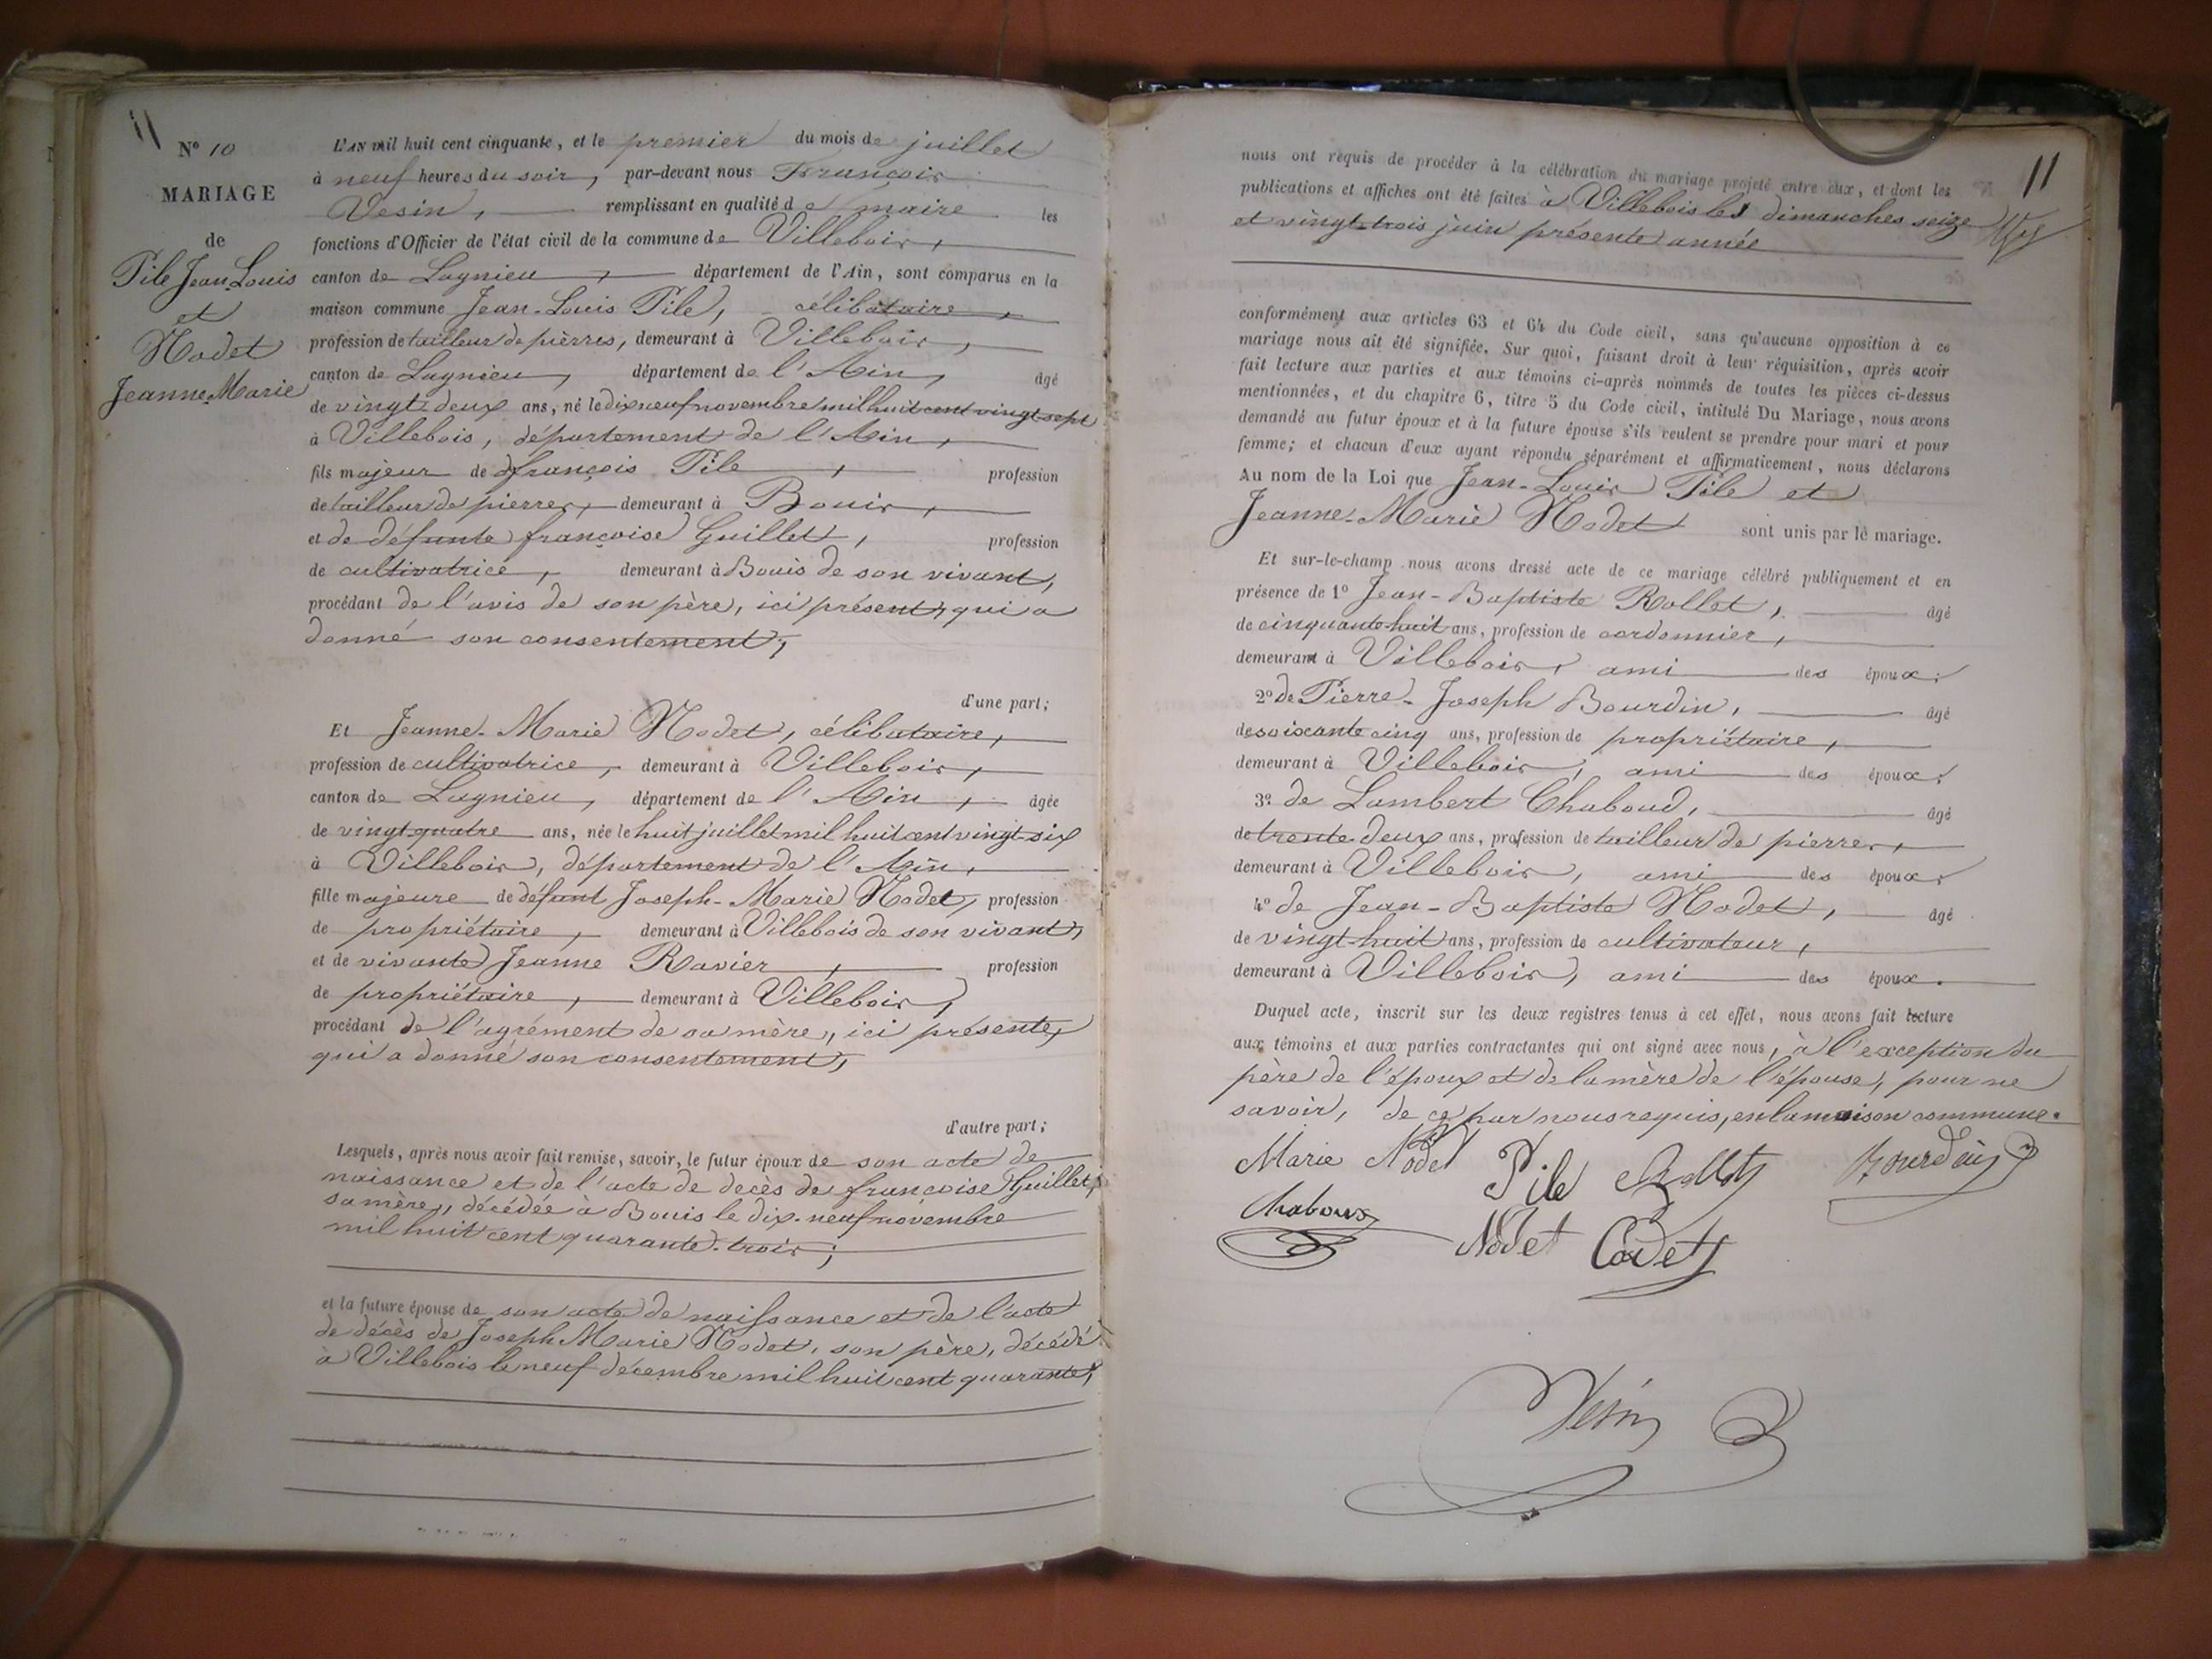 11
N° 10
MARIAGE
de
Pile Jean-Louis
et
Nodet
Jeanne-Marie
L'AN mil huit cent cinquante, et le premier du mois de juillet
à neuf heures du soir, par-devant nous François
Vesin, remplissant en qualité de maire les
fonctions d'Officier de l'état civil de la commune de Villebois,
canton de Lagnieu, département de l'Ain, sont comparus en la
maison commune Jean-Louis Pile, célibataire,
profession de tailleur de pierres, demeurant à Villebois,
canton de Lagnieu, département de l'Ain, âgé
de vingt-deux ans, né le dix neuf novembre mil huit cent vingt-sept
à Villebois, département de l'Ain,
fils majeur de françois Pile, profession
de tailleur de pierres, demeurant à Bouis,
et de défunte françoise Guillet, profession
de cultivatrice, demeurant à Bouis de son vivant,
procédant de l'avis de son père, ici présent, qui a
donné son consentement,
d'une part;
Et Jeanne-Marie Nodet, célibataire,
profession de cultivatrice, demeurant à Villebois,
canton de Lagnieu, département de l'Ain, âgée
de vingt-quatre ans, née le huit juillet mil huit cent vingt-six
à Villebois, département de l'Ain,
fille majeure de défunt Joseph-Marie Nodet, profession
de propriétaire, demeurant à Villebois de son vivant,
et de vivante Jeanne Ravier, profession
de propriétaire, demeurant à Villebois,
procédant de l'agrément de sa mère, ici présente,
qui a donné son consentement,
d'autre part;
Lesquels, après nous avoir fait remise, savoir, le futur époux de son acte de
naissance et de l'acte de decès de françoise Guillet,
sa mère, décédée à Bouis le dix-neuf novembre
mil huit cent quarante-trois;
et la future épouse de son acte de naissance et de l'acte
de décès de Joseph Marie Nodet, son père, décédé
à Villebois le neuf décembre mil huit cent quarante,
11
nous ont requis de procéder à la célébration du mariage projeté entre eux, et dont les
publications et affiches ont été faites à Villebois les dimanches seize
et vingt-trois juin présente année
conformément aux articles 63 et 64 du Code civil, sans qu'aucune opposition à ce
mariage nous ait été signifiée. Sur quoi, faisant droit à leur réquisition, après avoir
fait lecture aux parties et aux témoins ci-après nommés de toutes les pièces ci-dessus
mentionnées, et du chapitre 6, titre 5 du Code civil, intitulé Du Mariage, nous avons
demandé au futur époux et à la future épouse s'ils veulent se prendre pour mari et pour
femme; et chacun d'eux ayant répondu séparément et affirmativement, nous déclarons
Au nom de la Loi que Jean-Louis Pile et
Jeanne-Marie Nodet sont unis par le mariage.
Et sur-le-champ nous avons dressé acte de ce mariage célébré publiquement et en
présence de 1° Jean-Baptiste Rollet, âgé
de cinquante-huit ans, profession de cordonnier,
demeurant à Villebois, ami des époux;
2° de Pierre-Joseph Bourdin, âgé
de soixante cinq ans, profession de propriétaire,
demeurant à Villebois, ami des époux;
3° de Lambert Chaboud, âgé
de trente-deux ans, profession de tailleur de pierres,
demeurant à Villebois, ami des époux;
4° de Jean-Baptiste Nodet, âgé
de vingt-huit ans, profession de cultivateur,
demeurant à Villebois, ami des époux.
Duquel acte, inscrit sur les deux registres tenus à cet effet, nous avons fait lecture
aux témoins et aux parties contractantes qui ont signé avec nous, à l'exception du
père de l'époux et de la mère de l'épouse, pour ne
savoir, de ce par nous requis, en la maison commune.
Marie Nodet Pile Rollet Bourdin
Chaboux Nodet Cadet
Vesin